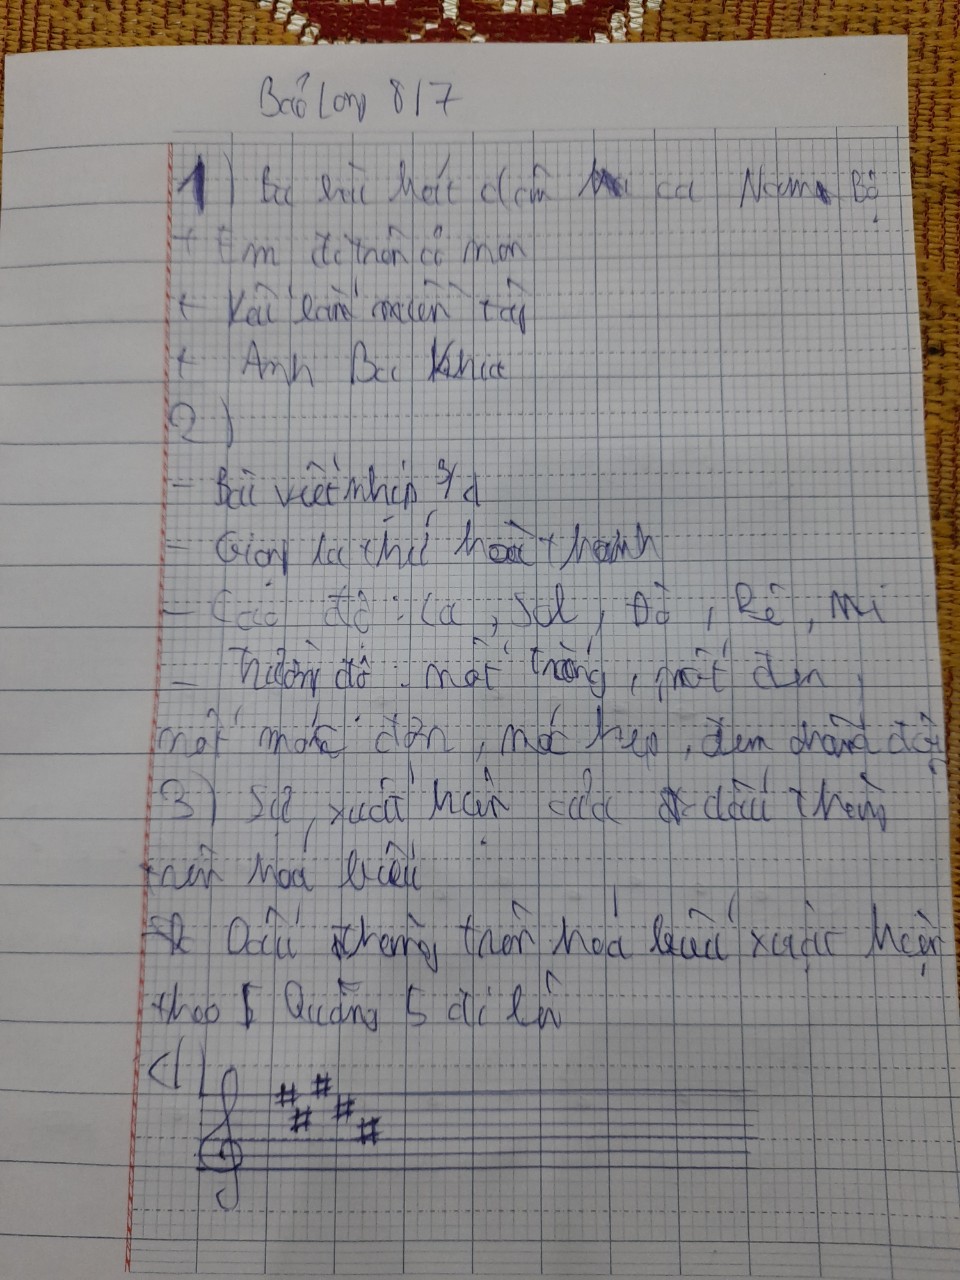 Bảo Long 8/7
1) Ba bài hát dân ca Nam Bộ
+ Em đi trên cỏ non
+ miền tây
+ Anh Ba Khía
2)
- Bài viết nhịp 3/4
- Giọng la thứ hoà thanh
- Cao độ: La, Sol, Đô, Rê, mi
- Trường độ: nốt trắng, nốt đen,
nốt móc đơn, móc kép, đen chấm dôi
3) Sự xuất hiện của dấu thăng
trên hoá biểu
Dấu thăng trên hoá biểu xuất hiện
theo Quãng 5 đi lên